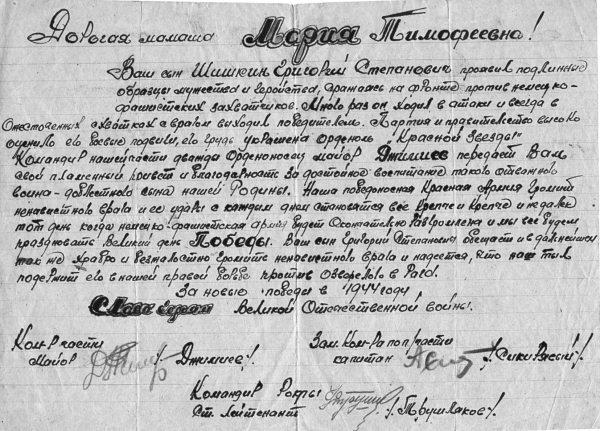 Дорогая мамаша Мария Тимофеевна!
Ваш сын Шишкин Григорий Степанович проявил подлинные
образцы мужества и геройства, сражаясь на фронте против немецко-
фашистских захватчиков. Много раз он ходил в атаки и всегда в
ожесточенных схватках с врагом выходил победителем. Партия и правительство высоко
оценило его боевые подвиги, его грудь украшена орденом "Красной Звезды"
Командир нашей части дважды Орденоносец майор Джилиев передает Вам
свой пламенный привет и благодарность за достойное воспитание такого отважного
воина-доблестного сына нашей Родины. Наша победоносная Красная Армия громит
ненавистного врага и ее удары с каждым днем становятся все крепче и крепче и недалек
тот день когда немецко-фашистская армия будет окончательно разгромлена и мы все будем
праздновать Великий день Победы. Ваш сын Григорий Степанович обещает и в дальнейшем
так же храбро и безжалостно громить ненавистного врага и надеется, что наш тыл
поддержит его в нашей правой борьбе против озверелого врага.
За новые победы в 1944 году
Слава героям Великой Отечественной войны.
Ком-р части
майор /Джилиев/.
Зам. Ком-ра по п/части
капитан
Командир роты
Ст. лейтенант /Трушляков/.